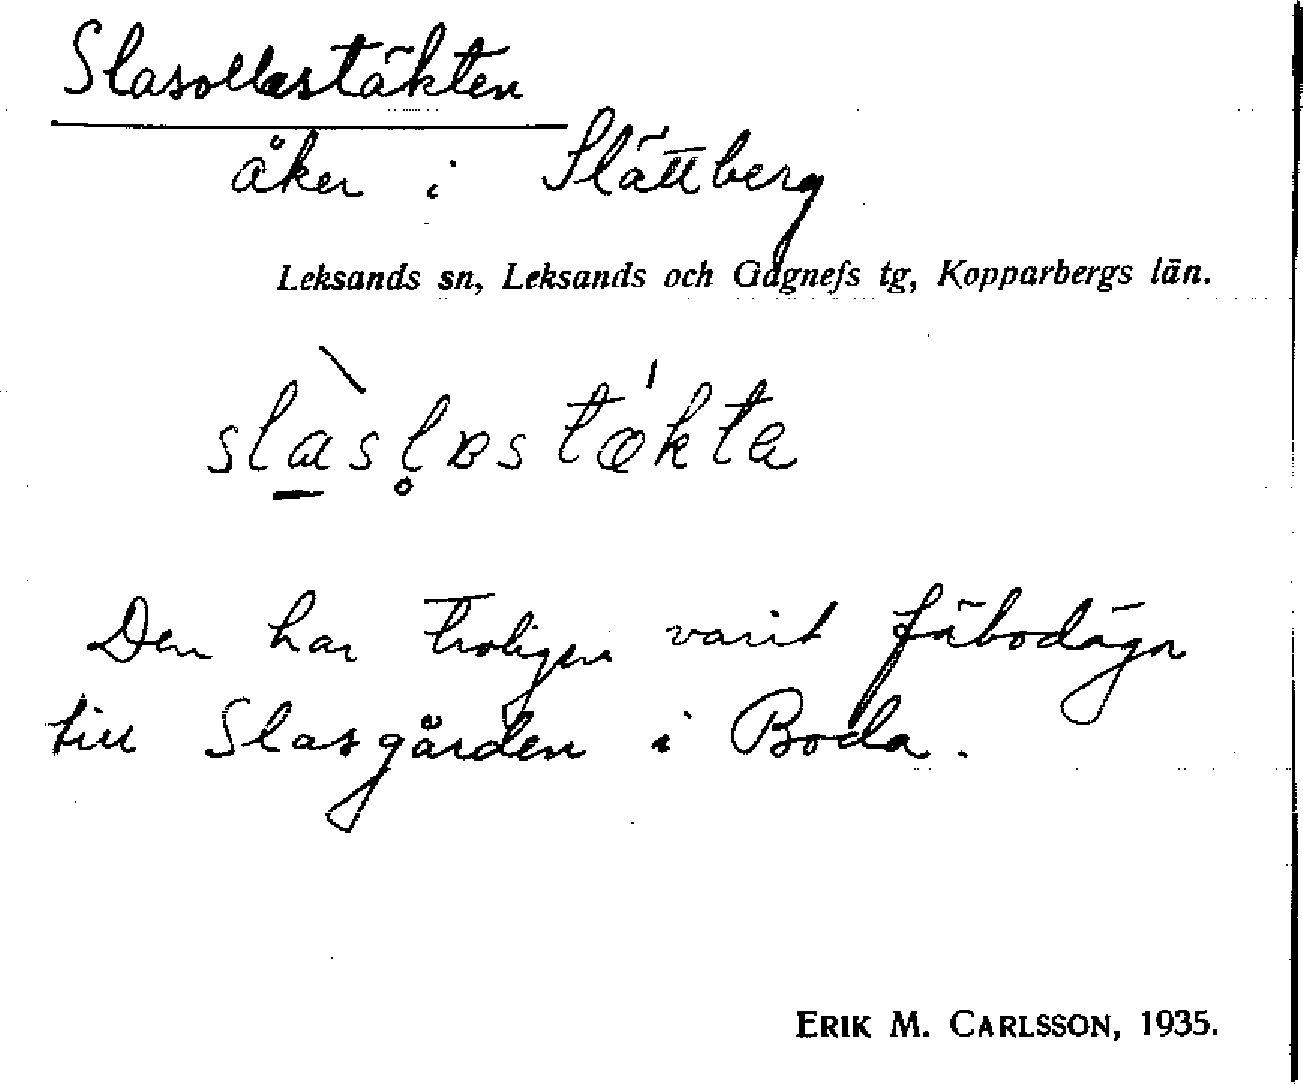 Slasollastäkten
åker i Slättberg
Leksands sn, Leksands och Gagnefs tg, Kopparbergs län.
slàsl̥ɐstǽkta
Den har troligen varit fäbodägn
till Slasgården i Boda.
ERIK M. CARLSSON, 1935.